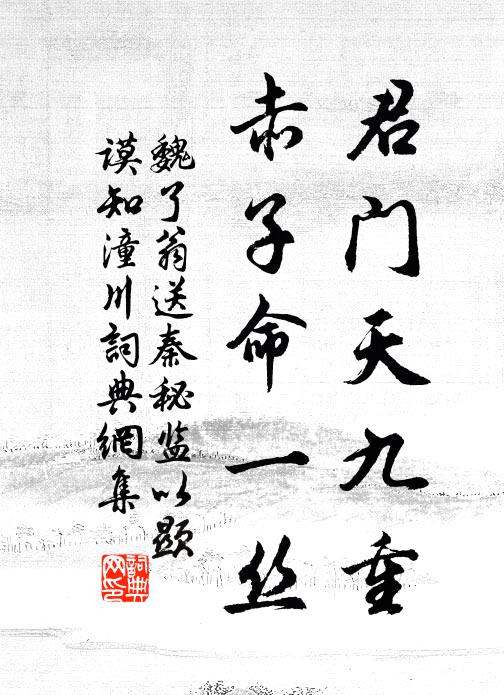 君门天九重
赤子命一丝
魏了翁送秦秘监以顯
謨知潼川詞典網集
詞典网印